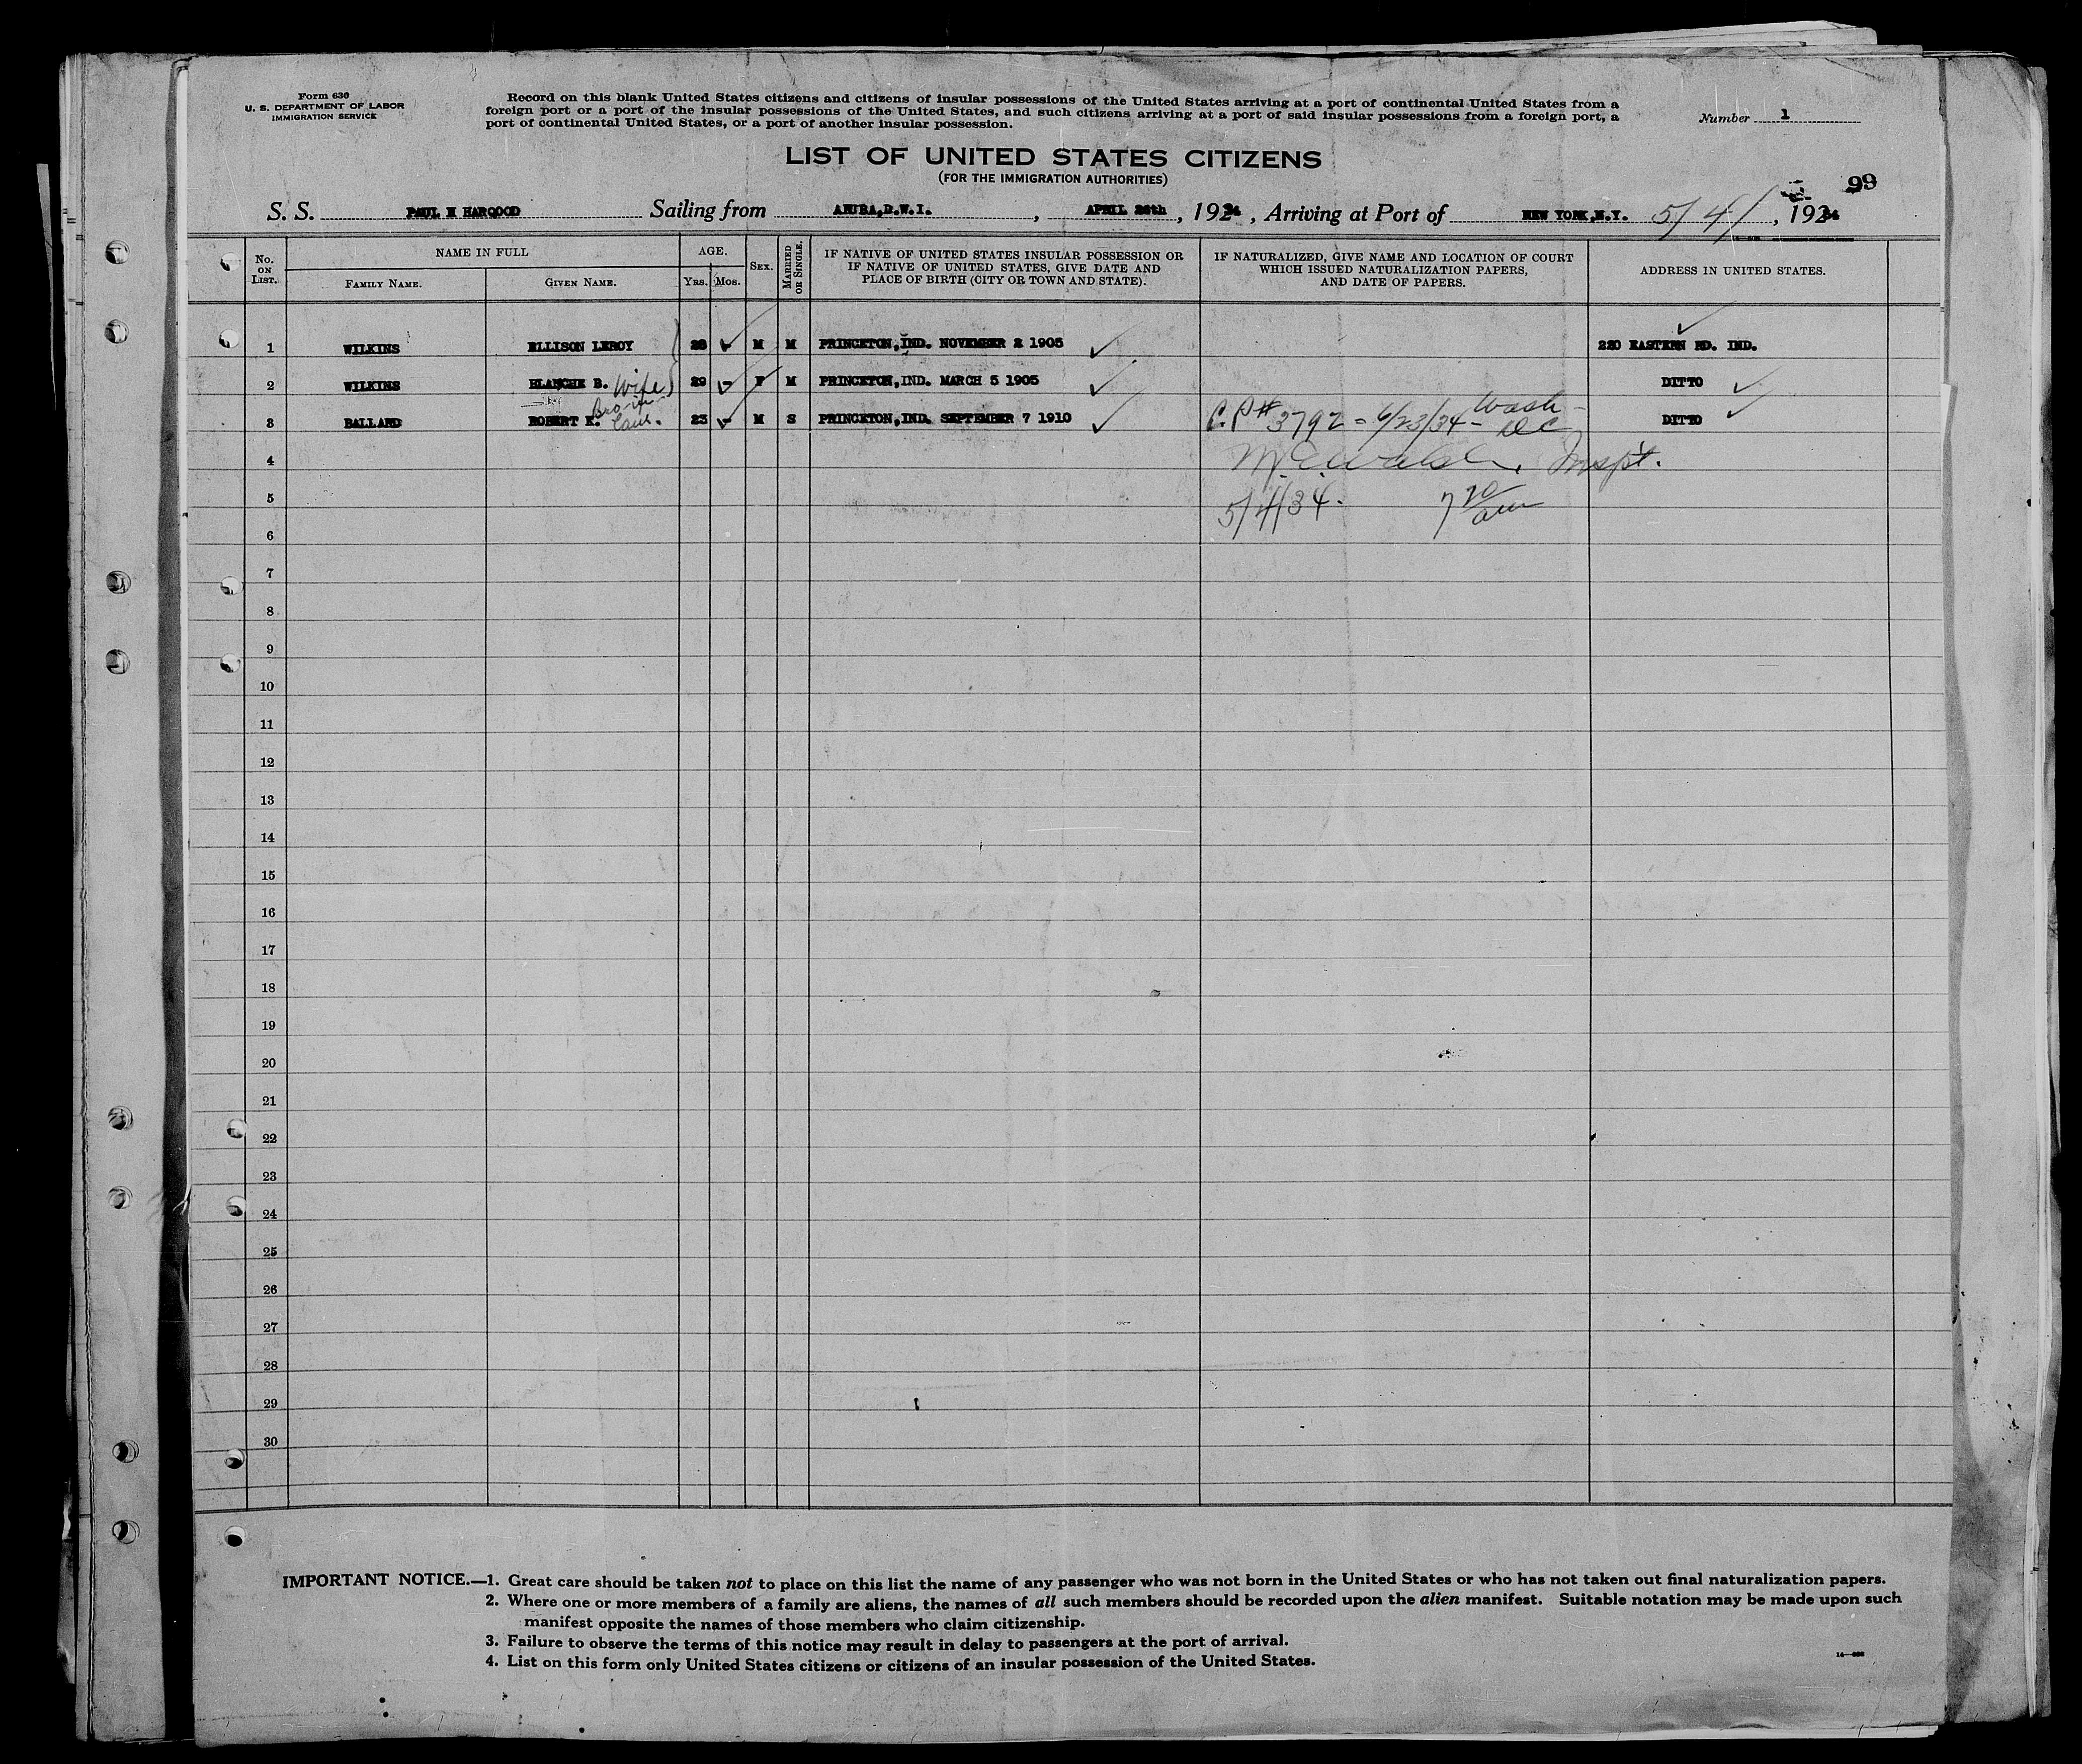 Form 630
U. S. DEPARTMENT OF LABOR
IMMIGRATION SERVICE
Record on this blank United States citizens and citizens of insular possessions of the United States arriving at a port of continental United States from a
foreign port or a port of the insular possessions of the United States, and such citizens arriving at a port of said insular possessions from a foreign port, a
port of continental United States, or a port of another insular possession.
Number 1
LIST OF UNITED STATES CITIZENS
(FOR THE IMMIGRATION AUTHORITIES)
99
S. S. PAUL H HARWOOD Sailing from ARUBA,D.W.I. , APRIL 26th , 1934 , Arriving at Port of NEW YORK,N.Y. 5/4/ , 1934
No. ON LIST. NAME IN FULL AGE. SEX. MARRIED OR SINGLE. IF NATIVE OF UNITED STATES INSULAR POSSESSION OR IF NATIVE OF UNITED STATES, GIVE DATE AND PLACE OF BIRTH (CITY OR TOWN AND STATE). IF NATURALIZED, GIVE NAME AND LOCATION OF COURT WHICH ISSUED NATURALIZATION PAPERS, AND DATE OF PAPERS. ADDRESS IN UNITED STATES.
FAMILY NAME. GIVEN NAME. YRS. MOS.
1 WILKINS ELLISON LEROY 28 M M PRINCETON,IND. NOVEMBER 2 1905 220 EASTERN RD. IND.
2 WILKINS BLANCHE B. Wife 29 F M PRINCETON,IND. MARCH 5 1905 DITTO
3 BALLARD ROBERT K. Bro-in-Law. 23 M S PRINCETON,IND. SEPTEMBER 7 1910 C.P# 3792 - 6/23/34 - Wash - DC DITTO
4 Inspt.
5 5/4/34. 7 20/am
6
7
8
9
10
11
12
13
14
15
16
17
18
19
20
21
22
23
24
25
26
27
28
29
30
IMPORTANT NOTICE.—1. Great care should be taken not to place on this list the name of any passenger who was not born in the United States or who has not taken out final naturalization papers.
2. Where one or more members of a family are aliens, the names of all such members should be recorded upon the alien manifest. Suitable notation may be made upon such
manifest opposite the names of those members who claim citizenship.
3. Failure to observe the terms of this notice may result in delay to passengers at the port of arrival.
4. List on this form only United States citizens or citizens of an insular possession of the United States.